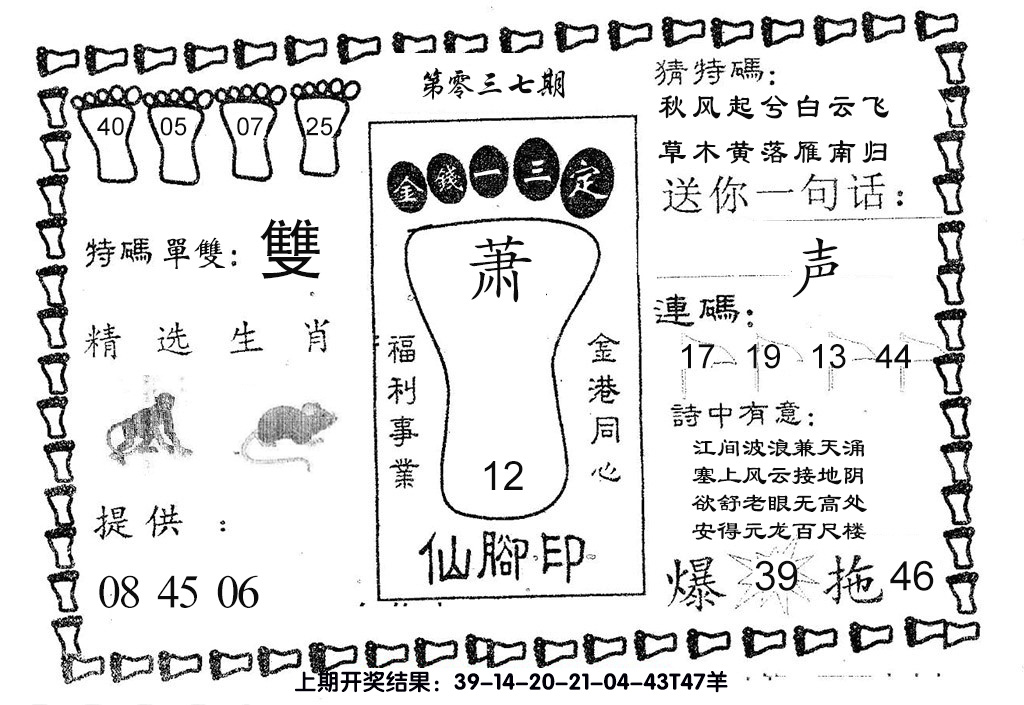 第零三七期
40 05 07 25
特碼單雙：雙
精选生肖
提供：
08 45 06
金錢一三定
萧
福利事業
金港同心
12
仙腳印
猜特碼：
秋风起兮白云飞
草木黄落雁南归
送你一句话：
声
連碼：
17 19 13 44
詩中有意：
江间波浪兼天涌
塞上风云接地阴
欲舒老眼无高处
安得元龙百尺楼
爆 39 拖 46
上期开奖结果：39-14-20-21-04-43T47羊